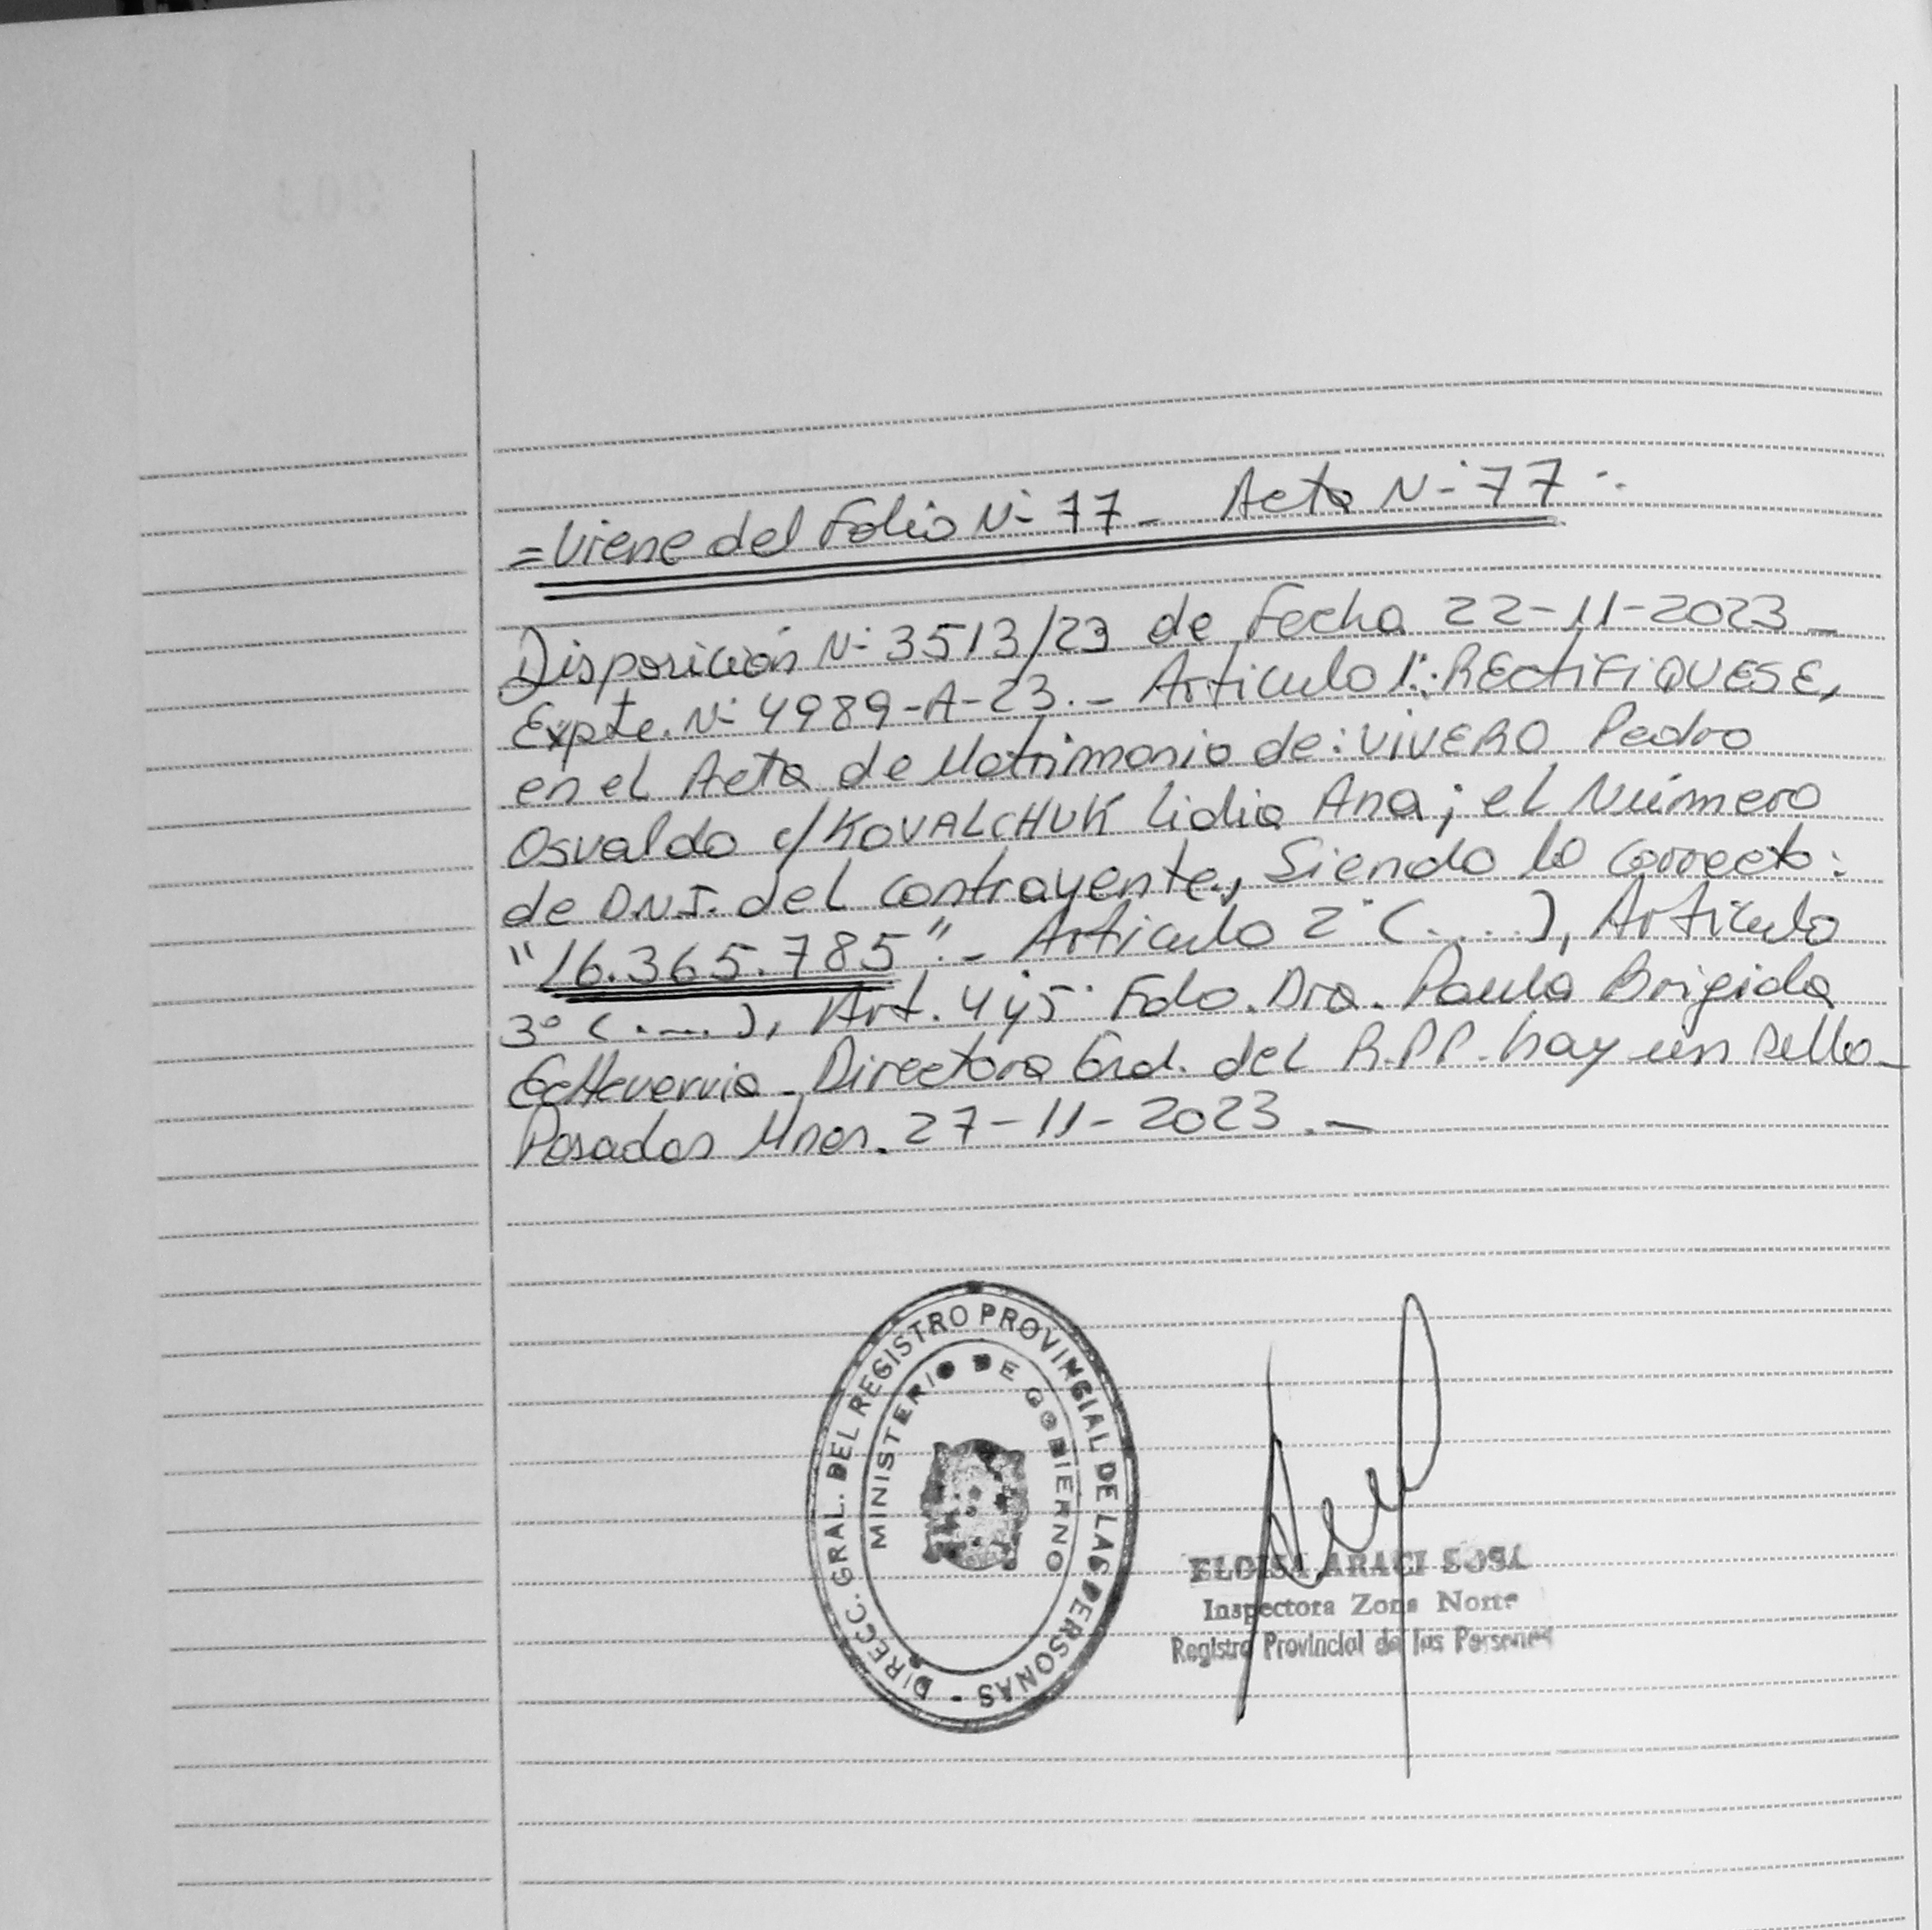 =Viene del Folio Nº 77 - Acta Nº 77.-
Disposición Nº 3513/23 de Fecha 22-11-2023 -
Expte. Nº 4989-A-23.- Articulo 1º: RECTIFIQUESE,
en el Acta de Matrimonio de: VIVERO Pedro
Osvaldo c/ KOVALCHUK Lidia Ana; el Número
de D.N.I. del contrayente, Siendo lo correcto:
"16.365.785".- Articulo 2º (....), Articulo
3º (....), Art. 4 y 5º Fdo. Dra. Paula Brigida
Echeverria - Directora Gral. del R.P.P. hay un sello -
Posadas Mnes. 27-11-2023.-
DIRECC. GRAL. DEL REGISTRO PROVINCIAL DE LAS PERSONAS -
MINISTERIO DE GOBIERNO
ELOISA ARACI SOSA
Inspectora Zona Norte
Registro Provincial de las Personas